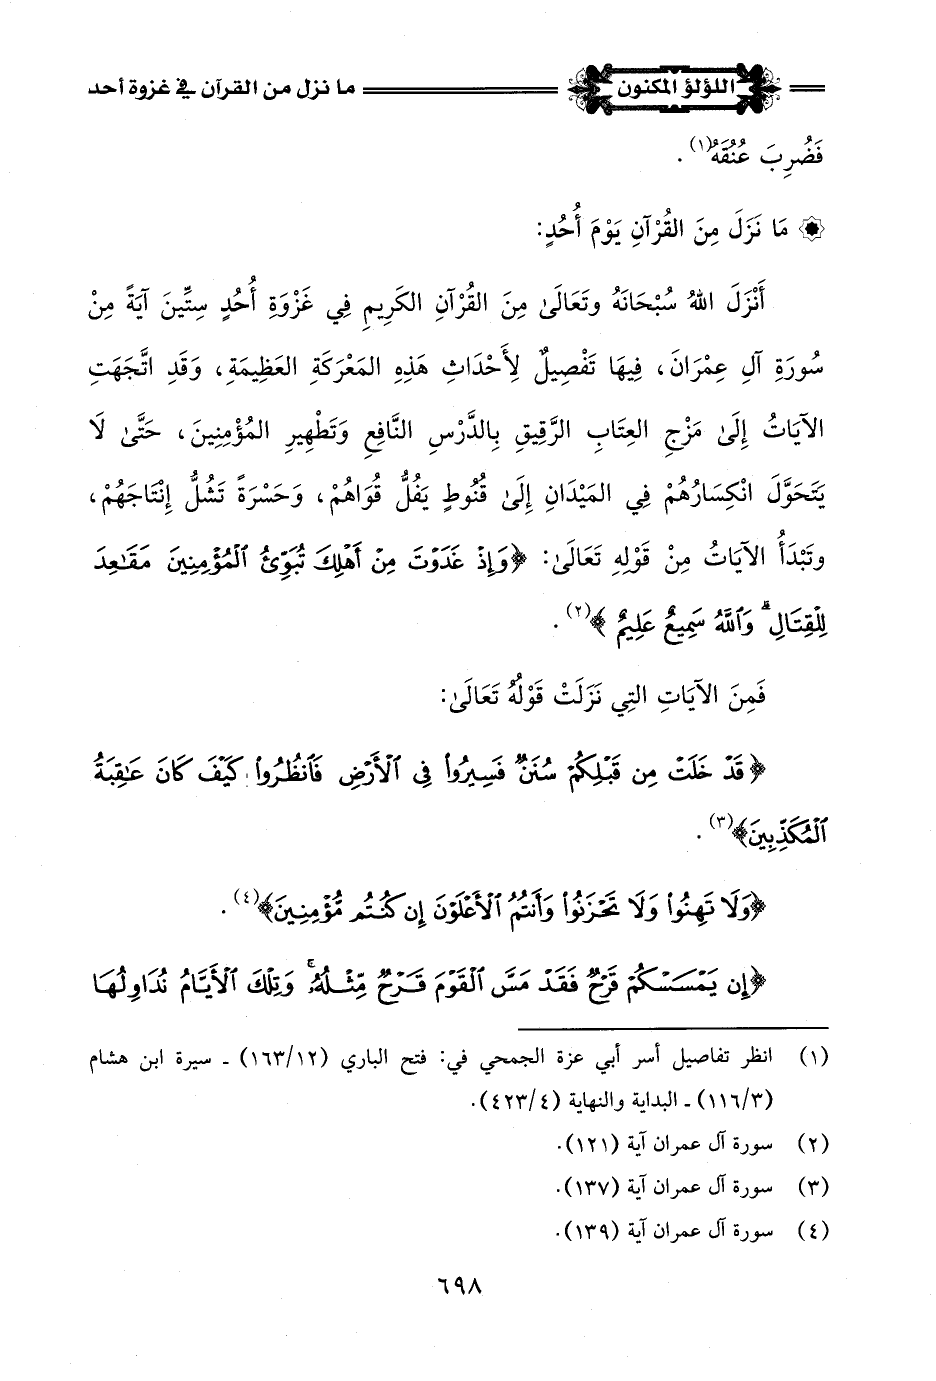 اللؤلؤ المكنون ما نزل من القرآن في غزوة أحد
فَضُرِبَ عُنُقُهُ(١) .
مَا نَزَلَ مِنَ القُرْآنِ يَوْمَ أُحُدٍ:
أَنْزَلَ اللهُ سُبْحَانَهُ وتَعَالَىٰ مِنَ القُرْآنِ الكَرِيمِ فِي غَزْوَةِ أُحُدٍ سِتِّينَ آيَةً مِنْ
سُورَةِ آلِ عِمْرَانَ، فِيهَا تَفْصِيلٌ لِأَحْدَاثِ هَذِهِ المَعْرَكَةِ العَظِيمَةِ، وَقَدِ اتَّجَهَتِ
الآيَاتُ إِلَىٰ مَزْجِ العِتَابِ الرَّقِيقِ بِالدَّرْسِ النَّافِعِ وَتَطْهِيرِ المُؤْمِنِينَ، حَتَّىٰ لَا
يَتَحَوَّلَ انْكِسَارُهُمْ فِي المَيْدَانِ إِلَىٰ قُنُوطٍ يَفُلُّ قُوَاهُمْ، وَحَسْرَةً تَشُلُّ إِنْتَاجَهُمْ،
وتَبْدَأُ الآيَاتُ مِنْ قَوْلِهِ تَعَالَىٰ: ﴿وَإِذْ غَدَوْتَ مِنْ أَهْلِكَ تُبَوِّئُ ٱلْمُؤْمِنِينَ مَقَٰعِدَ
لِلْقِتَالِ ۗ وَٱللَّهُ سَمِيعٌ عَلِيمٌ ﴾(٢) .
فَمِنَ الآيَاتِ التِي نَزَلَتْ قَوْلُهُ تَعَالَىٰ:
﴿قَدْ خَلَتْ مِن قَبْلِكُمْ سُنَنٌ فَسِيرُوا۟ فِى ٱلْأَرْضِ فَٱنظُرُوا۟ كَيْفَ كَانَ عَٰقِبَةُ
ٱلْمُكَذِّبِينَ﴾(٣) .
﴿وَلَا تَهِنُوا۟ وَلَا تَحْزَنُوا۟ وَأَنتُمُ ٱلْأَعْلَوْنَ إِن كُنتُم مُّؤْمِنِينَ﴾(٤) .
﴿إِن يَمْسَسْكُمْ قَرْحٌ فَقَدْ مَسَّ ٱلْقَوْمَ قَرْحٌ مِّثْلُهُۥ ۚ وَتِلْكَ ٱلْأَيَّامُ نُدَاوِلُهَا
(١) انظر تفاصيل أسر أبي عزة الجمحي في: فتح الباري (١٦٣/١٢) ـ سيرة ابن هشام
(١١٦/٣) ـ البداية والنهاية (٤٢٣/٤).
(٢) سورة آل عمران آية (١٢١).
(٣) سورة آل عمران آية (١٣٧).
(٤) سورة آل عمران آية (١٣٩).
٦٩٨